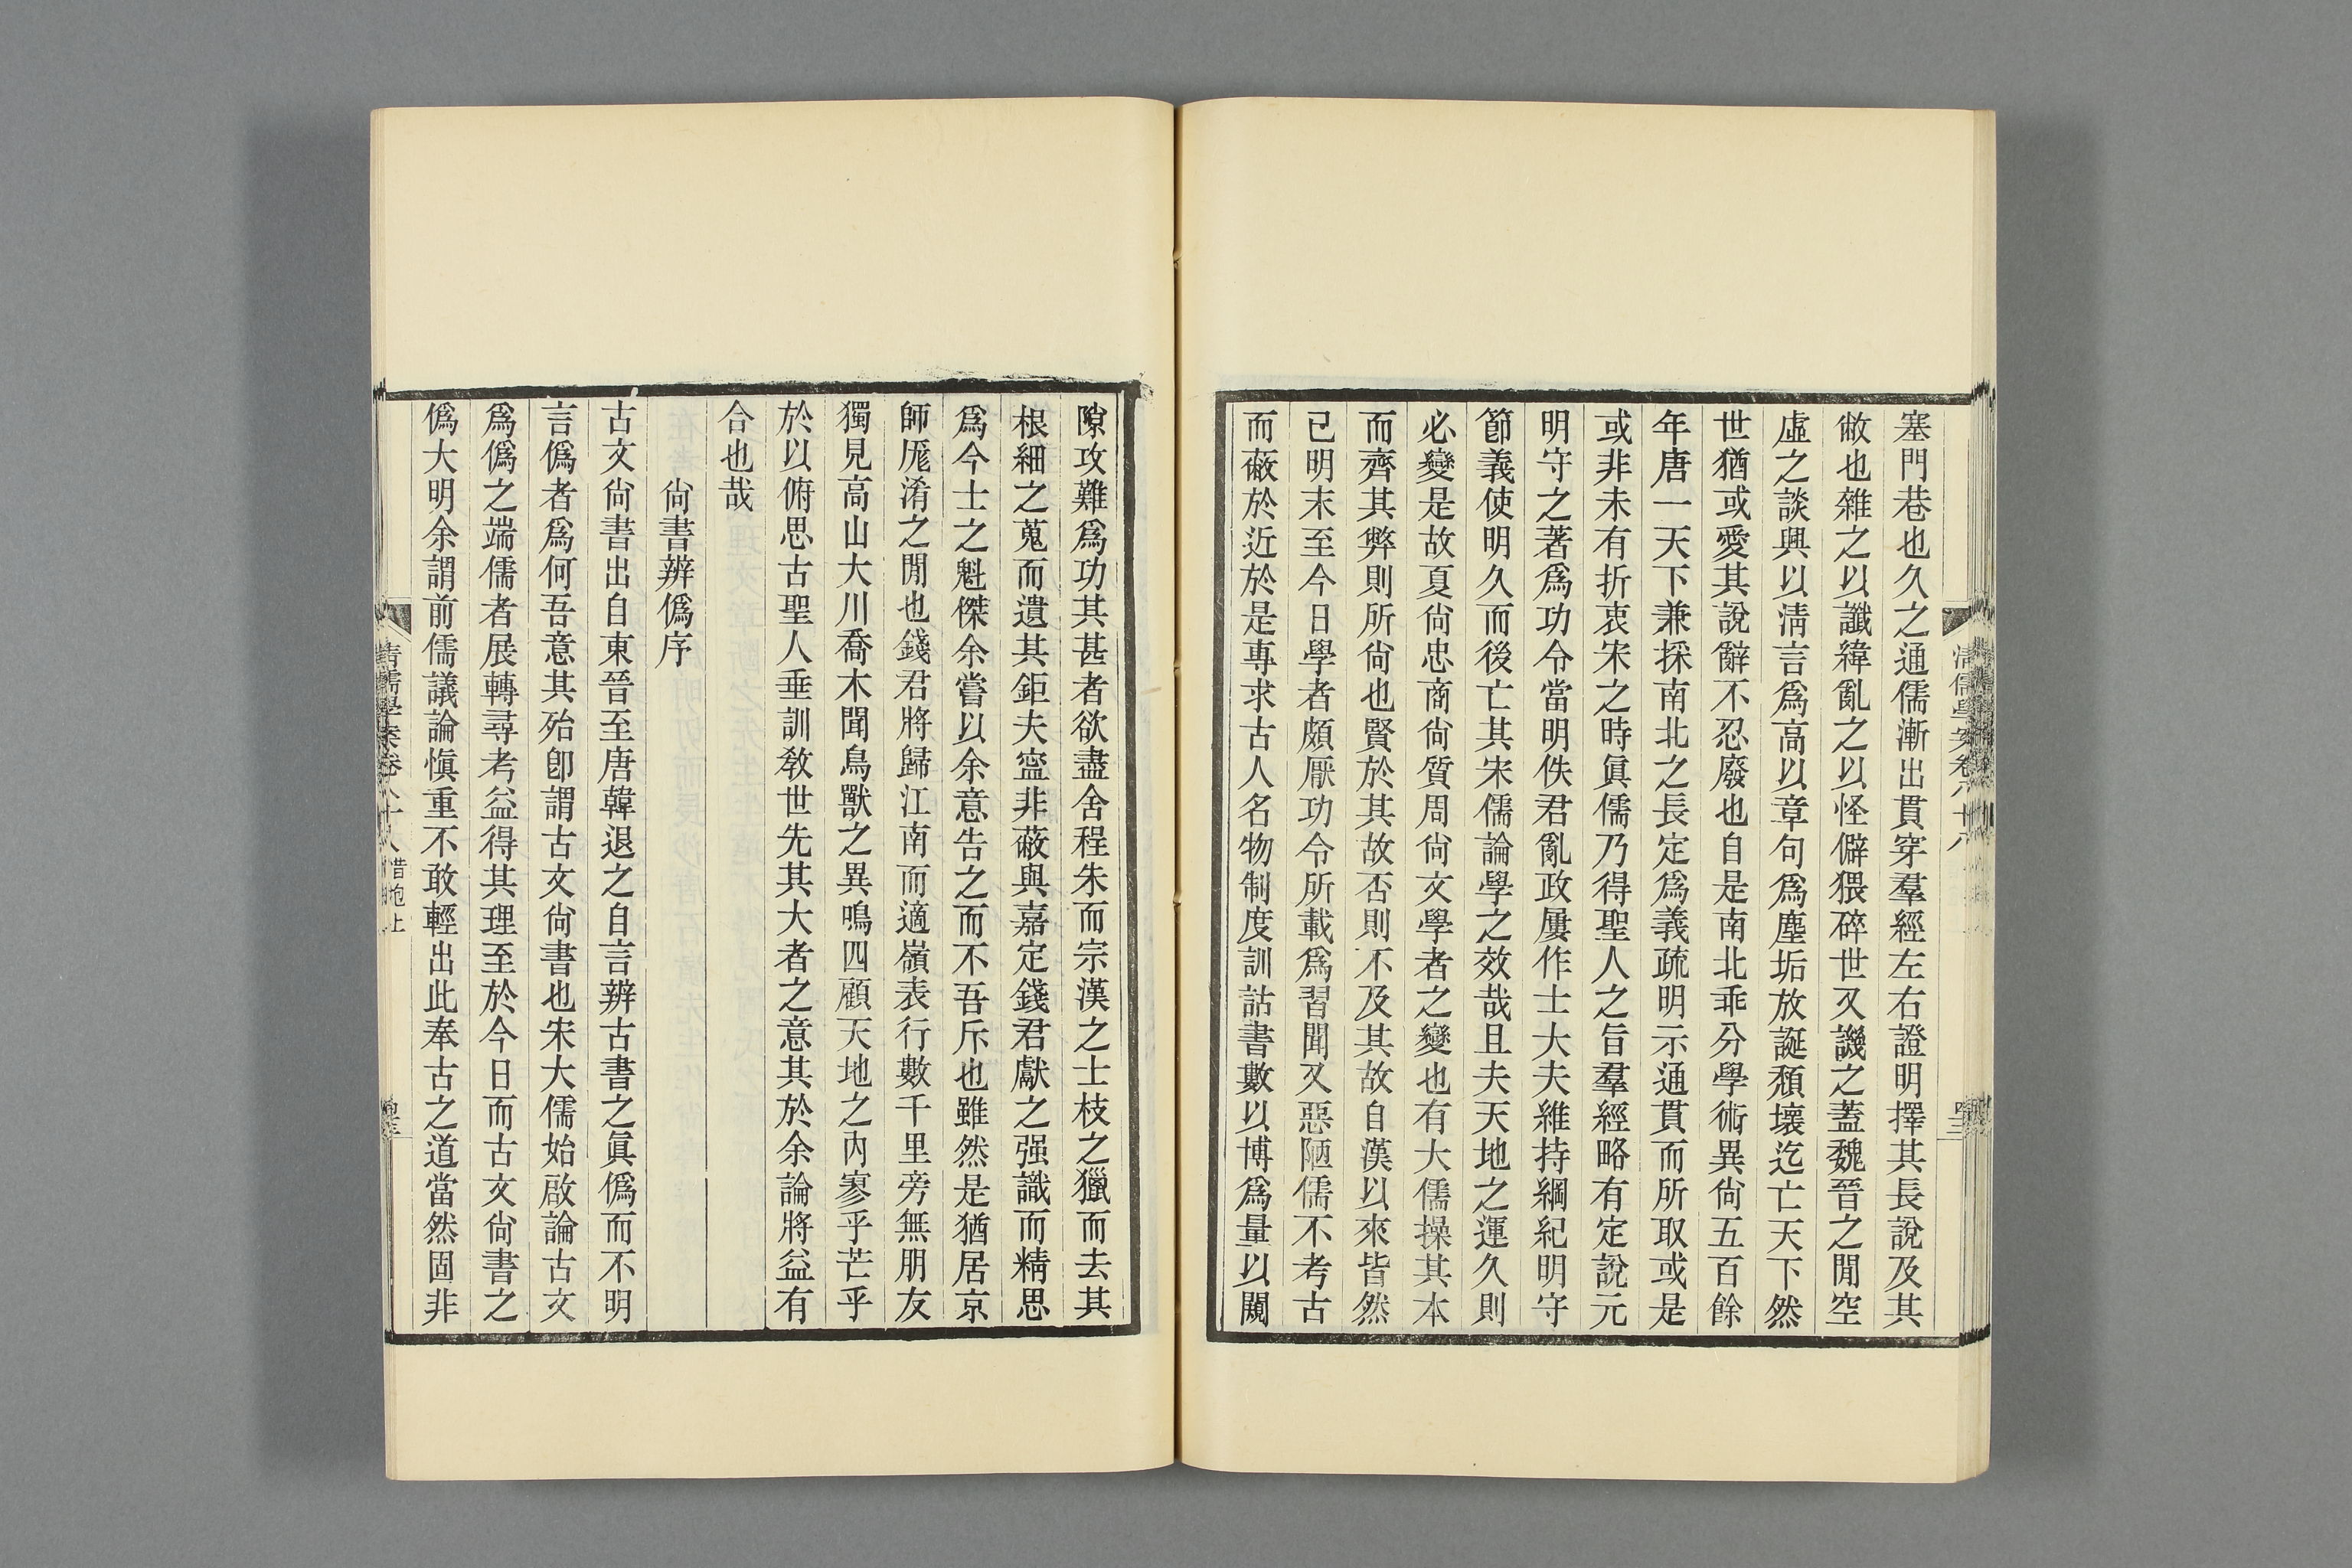 塞門巷也久之通儒漸出貫穿羣經左右證明擇其長說及其
敝也雜之以讖緯亂之以怪僻猥碎世又譏之蓋魏晉之閒空
虛之談興以淸言爲高以章句爲塵垢放誕頹壞迄亡天下然
世猶或愛其說辭不忍廢也自是南北乖分學術異尙五百餘
年唐一天下兼採南北之長定爲義疏明示通貫而所取或是
或非未有折衷宋之時眞儒乃得聖人之旨羣經略有定說元
明守之著爲功令當明佚君亂政屢作士大夫維持綱紀明守
節義使明久而後亡其宋儒論學之效哉且夫天地之運久則
必變是故夏尙忠商尙質周尙文學者之變也有大儒操其本
而齊其弊則所尙也賢於其故否則不及其故自漢以來皆然
已明末至今日學者頗厭功令所載爲習聞又惡陋儒不考古
而蔽於近於是專求古人名物制度訓詁書數以博爲量以闚
隙攻難爲功其甚者欲盡舍程朱而宗漢之士枝之獵而去其
根細之蒐而遺其鉅夫寍非蔽與嘉定錢君獻之强識而精思
爲今士之魁傑余嘗以余意告之而不吾斥也雖然是猶居京
師厖淆之閒也錢君將歸江南而適嶺表行數千里旁無朋友
獨見高山大川喬木聞鳥獸之異鳴四顧天地之內寥乎芒乎
於以俯思古聖人垂訓敎世先其大者之意其於余論將益有
合也哉
尙書辨僞序
古文尙書出自東晉至唐韓退之自言辨古書之眞僞而不明
言僞者爲何吾意其殆卽謂古文尙書也宋大儒始啟論古文
爲僞之端儒者展轉尋考益得其理至於今日而古文尙書之
僞大明余謂前儒議論愼重不敢輕出此奉古之道當然固非